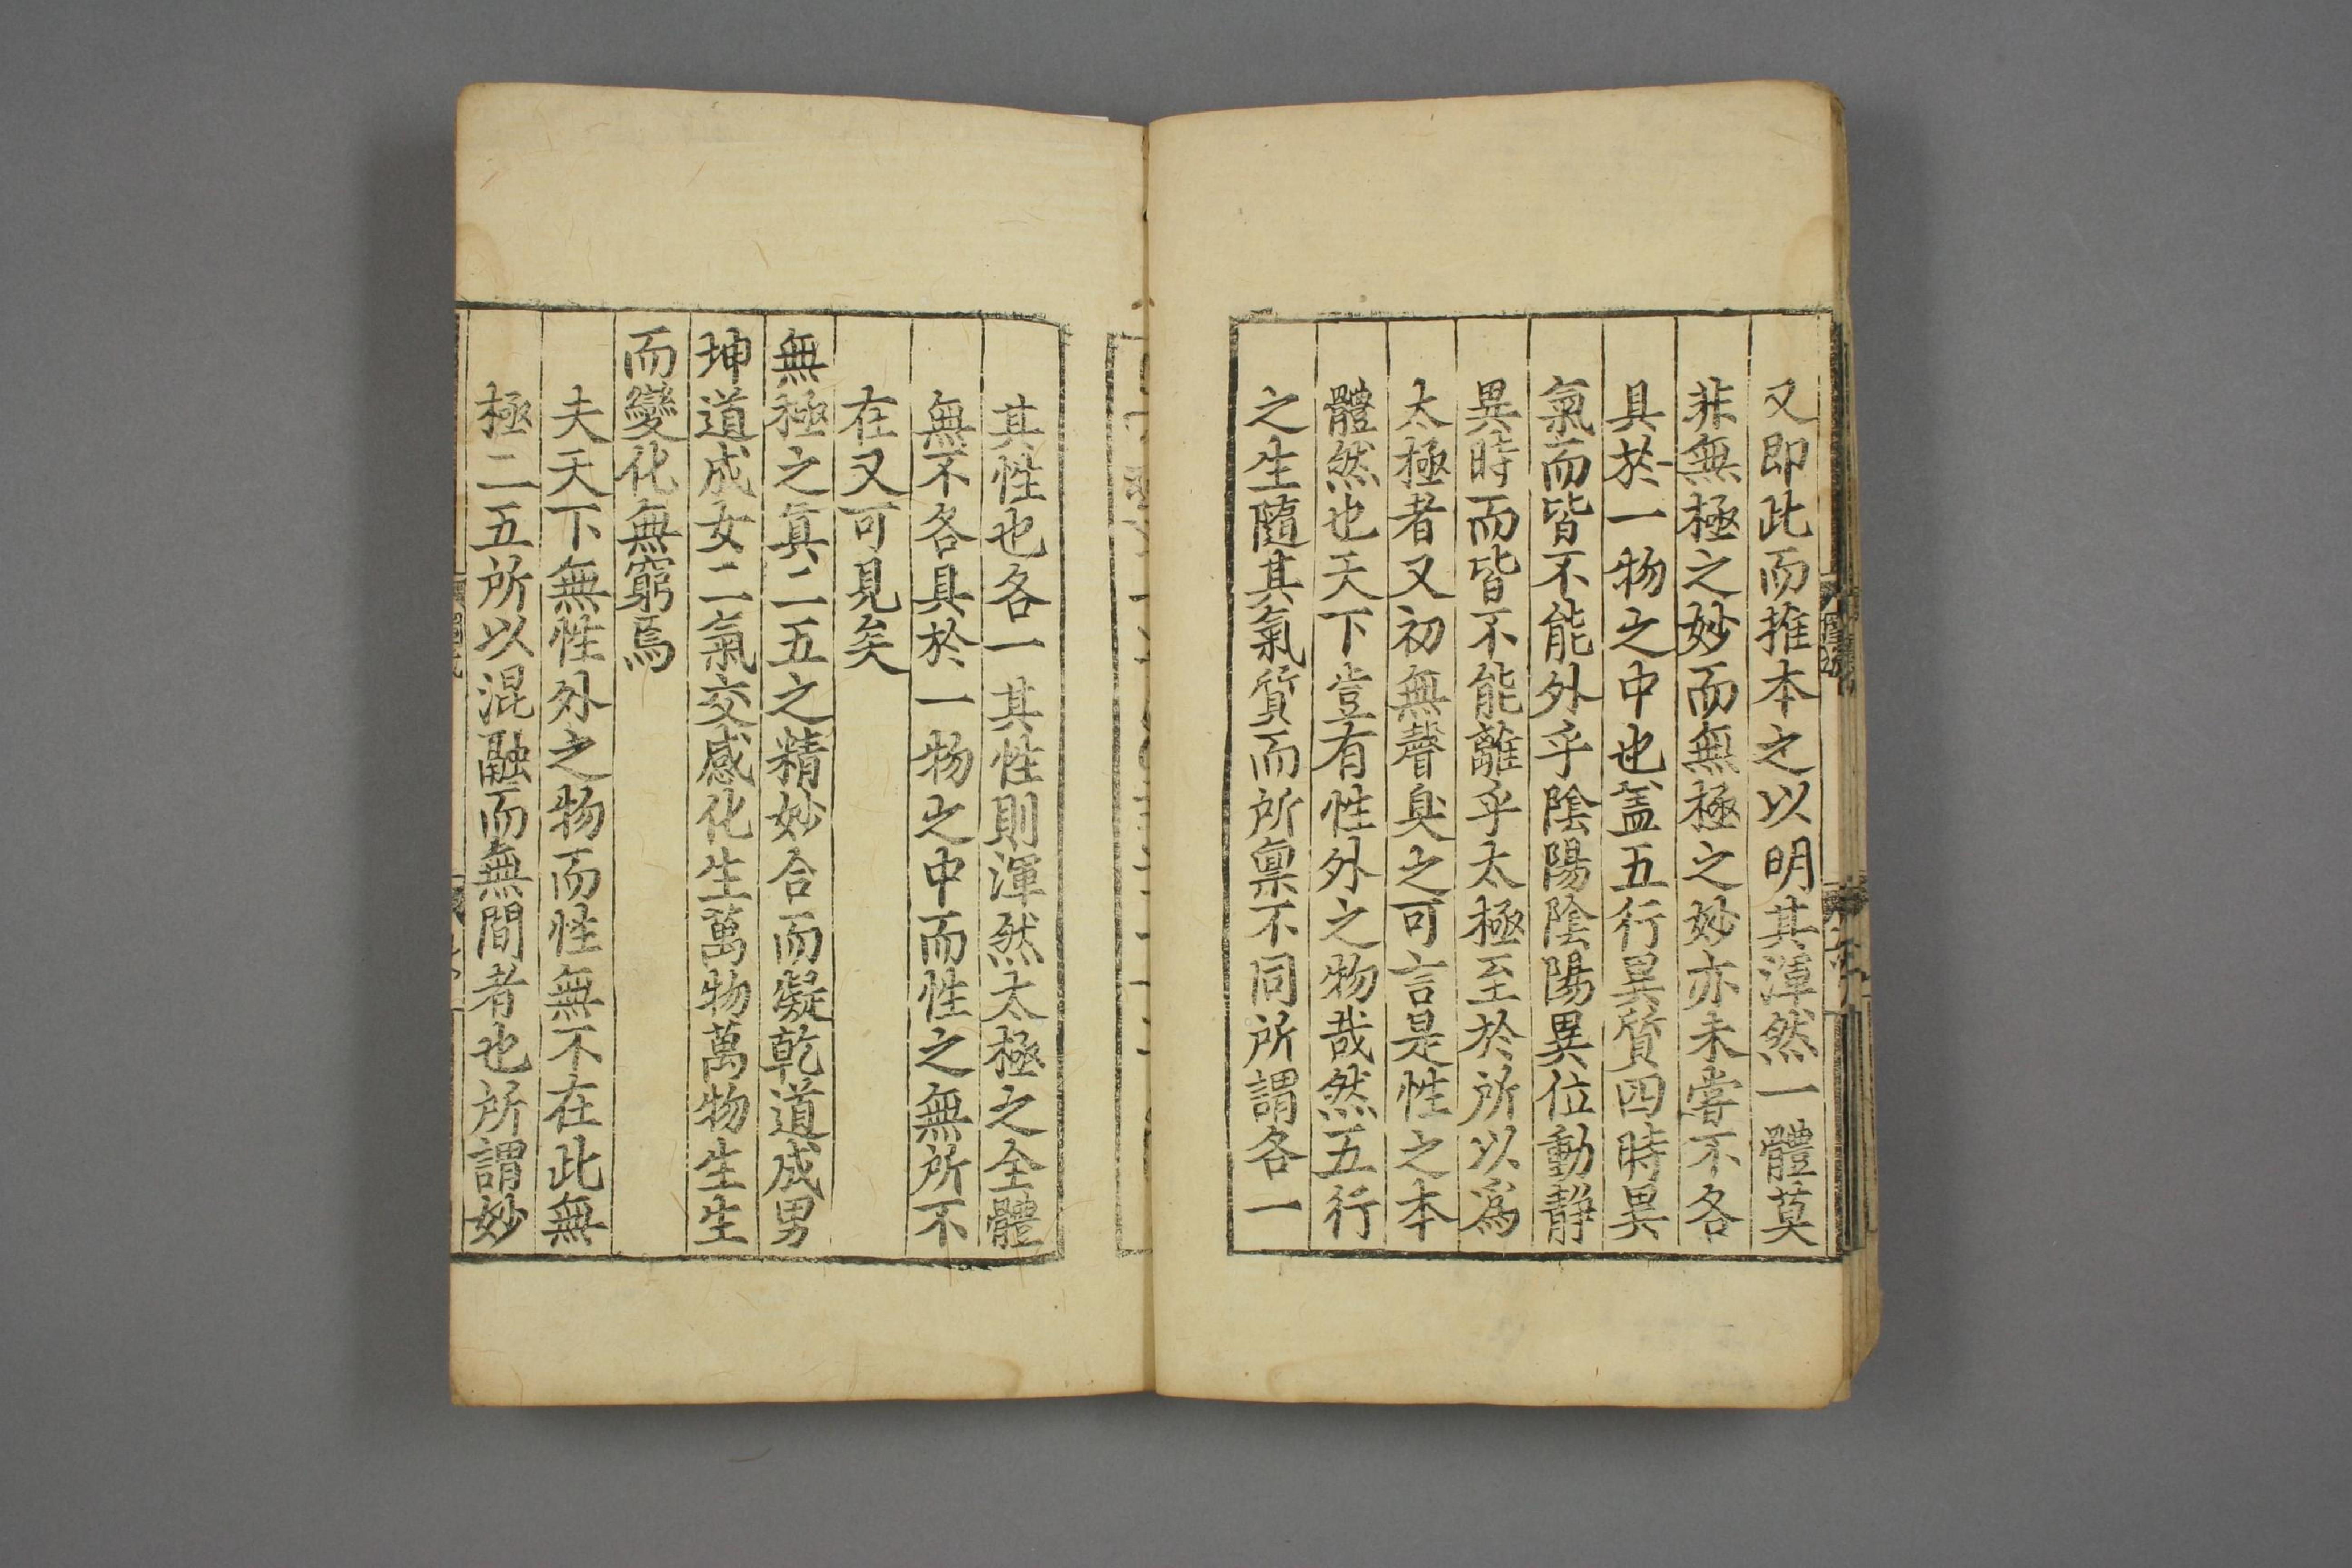 又即此而推本之以明其渾然一體莫
非無極之妙而無極之妙亦未嘗不各
具於一物之中也盖五行異質四時異
氣而皆不能外乎陰陽陰陽異位動靜
異時而皆不能離乎太極至於所以爲
太極者又初無聲臭之可言是性之本
體然也天下豈有性外之物哉然五行
之生隨其氣質而所禀不同所謂各一
其性也各一其性則渾然太極之全體
無不各具於一物之中而性之無所不
在又可見矣
無極之真二五之精妙合而凝乾道成男
坤道成女二氣交感化生萬物萬物生生
而變化無窮焉
夫天下無性外之物而性無不在此無
極二五所以混融而無間者也所謂妙